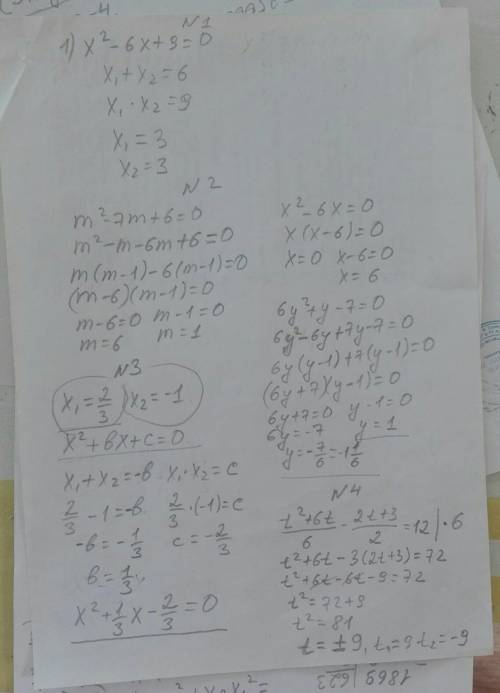 N1
1) x² - 6x + 9 = 0
x₁ + x₂ = 6
x₁ · x₂ = 9
x₁ = 3
x₂ = 3
N2
m² - 7m + 6 = 0
m² - m - 6m + 6 = 0
m(m-1) - 6(m-1) = 0
(m-6)(m-1) = 0
m-6=0 m-1=0
m=6 m=1
x² - 6x = 0
x(x-6) = 0
x=0 x-6=0
x=6
6y² + y - 7 = 0
6y² - 6y + 7y - 7 = 0
6y(y-1) + 7(y-1) = 0
(6y+7)(y-1) = 0
6y+7=0 y-1=0
6y=-7 y=1
y=-7/6=-1 1/6
N3
x₁ = 2/3 x₂ = -1
x² + bx + c = 0
x₁ + x₂ = -b x₁ · x₂ = c
2/3 - 1 = -b 2/3 · (-1) = c
-b = -1/3 c = -2/3
b = 1/3;
x² + 1/3 x - 2/3 = 0
N4
(t²+6t)/6 - (2t+3)/2 = 12 | · 6
t² + 6t - 3(2t+3) = 72
t² + 6t - 6t - 9 = 72
t² = 72 + 9
t² = 81
t = ±9, t₁ = 9 t₂ = -9
1869 623